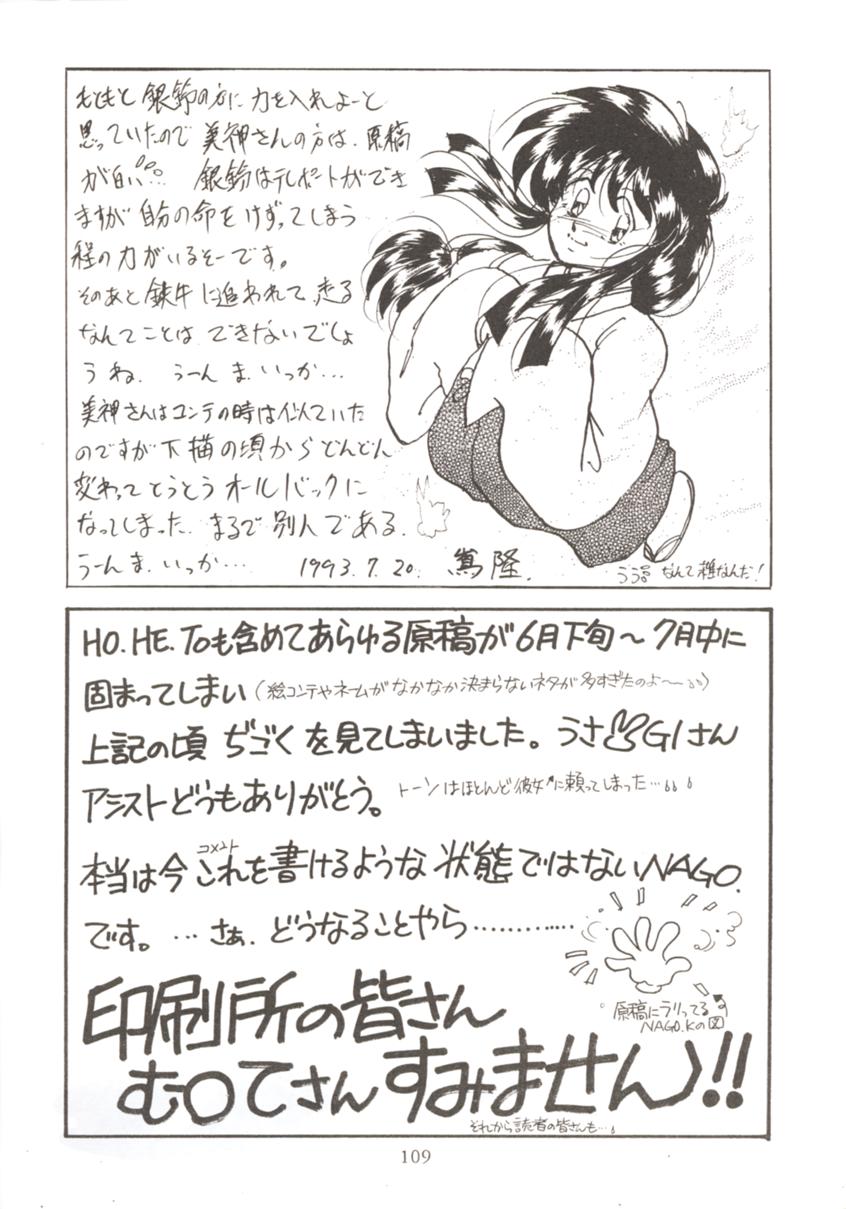 もともと銀鈴の方に力を入れよーと
思っていたので 美神さんの方は、原稿
が白い… 銀鈴はテレポートができ
ますが 自分の命をけずってしまう
程の力がいるそーです。
そのあと鉄牛に追われて、走る
なんてことは できないでしょ
うね、 うーん ま、いっか…
美神さんはコンテの時は似ていた
のですが下描の頃からどんどん
変わってとうとうオールバックに
なってしまった、まるで別人である、
うーん ま、いっか…
1993. 7. 20. 嵩 隆.
うう なんて雑なんだ!
HO.HE.Toも含めてあらゆる原稿が6月下旬～7月中に
固まってしまい（絵コンテやネームがなかなか決まらないネタが多すぎたのよ〜）
上記の頃 ぢごくを見てしまいました。うさGIさん
アシストどうもありがとう。トーンはほとんど彼女に頼ってしまった…
コメント
本当は今これを書けるような状態ではないNAGO.
です。…さぁ、どうなることやら…………
原稿にラリってる
NAGO.Kの図
印刷所の皆さん
む○てさんすみません!!
それから読者の皆さんも…
109